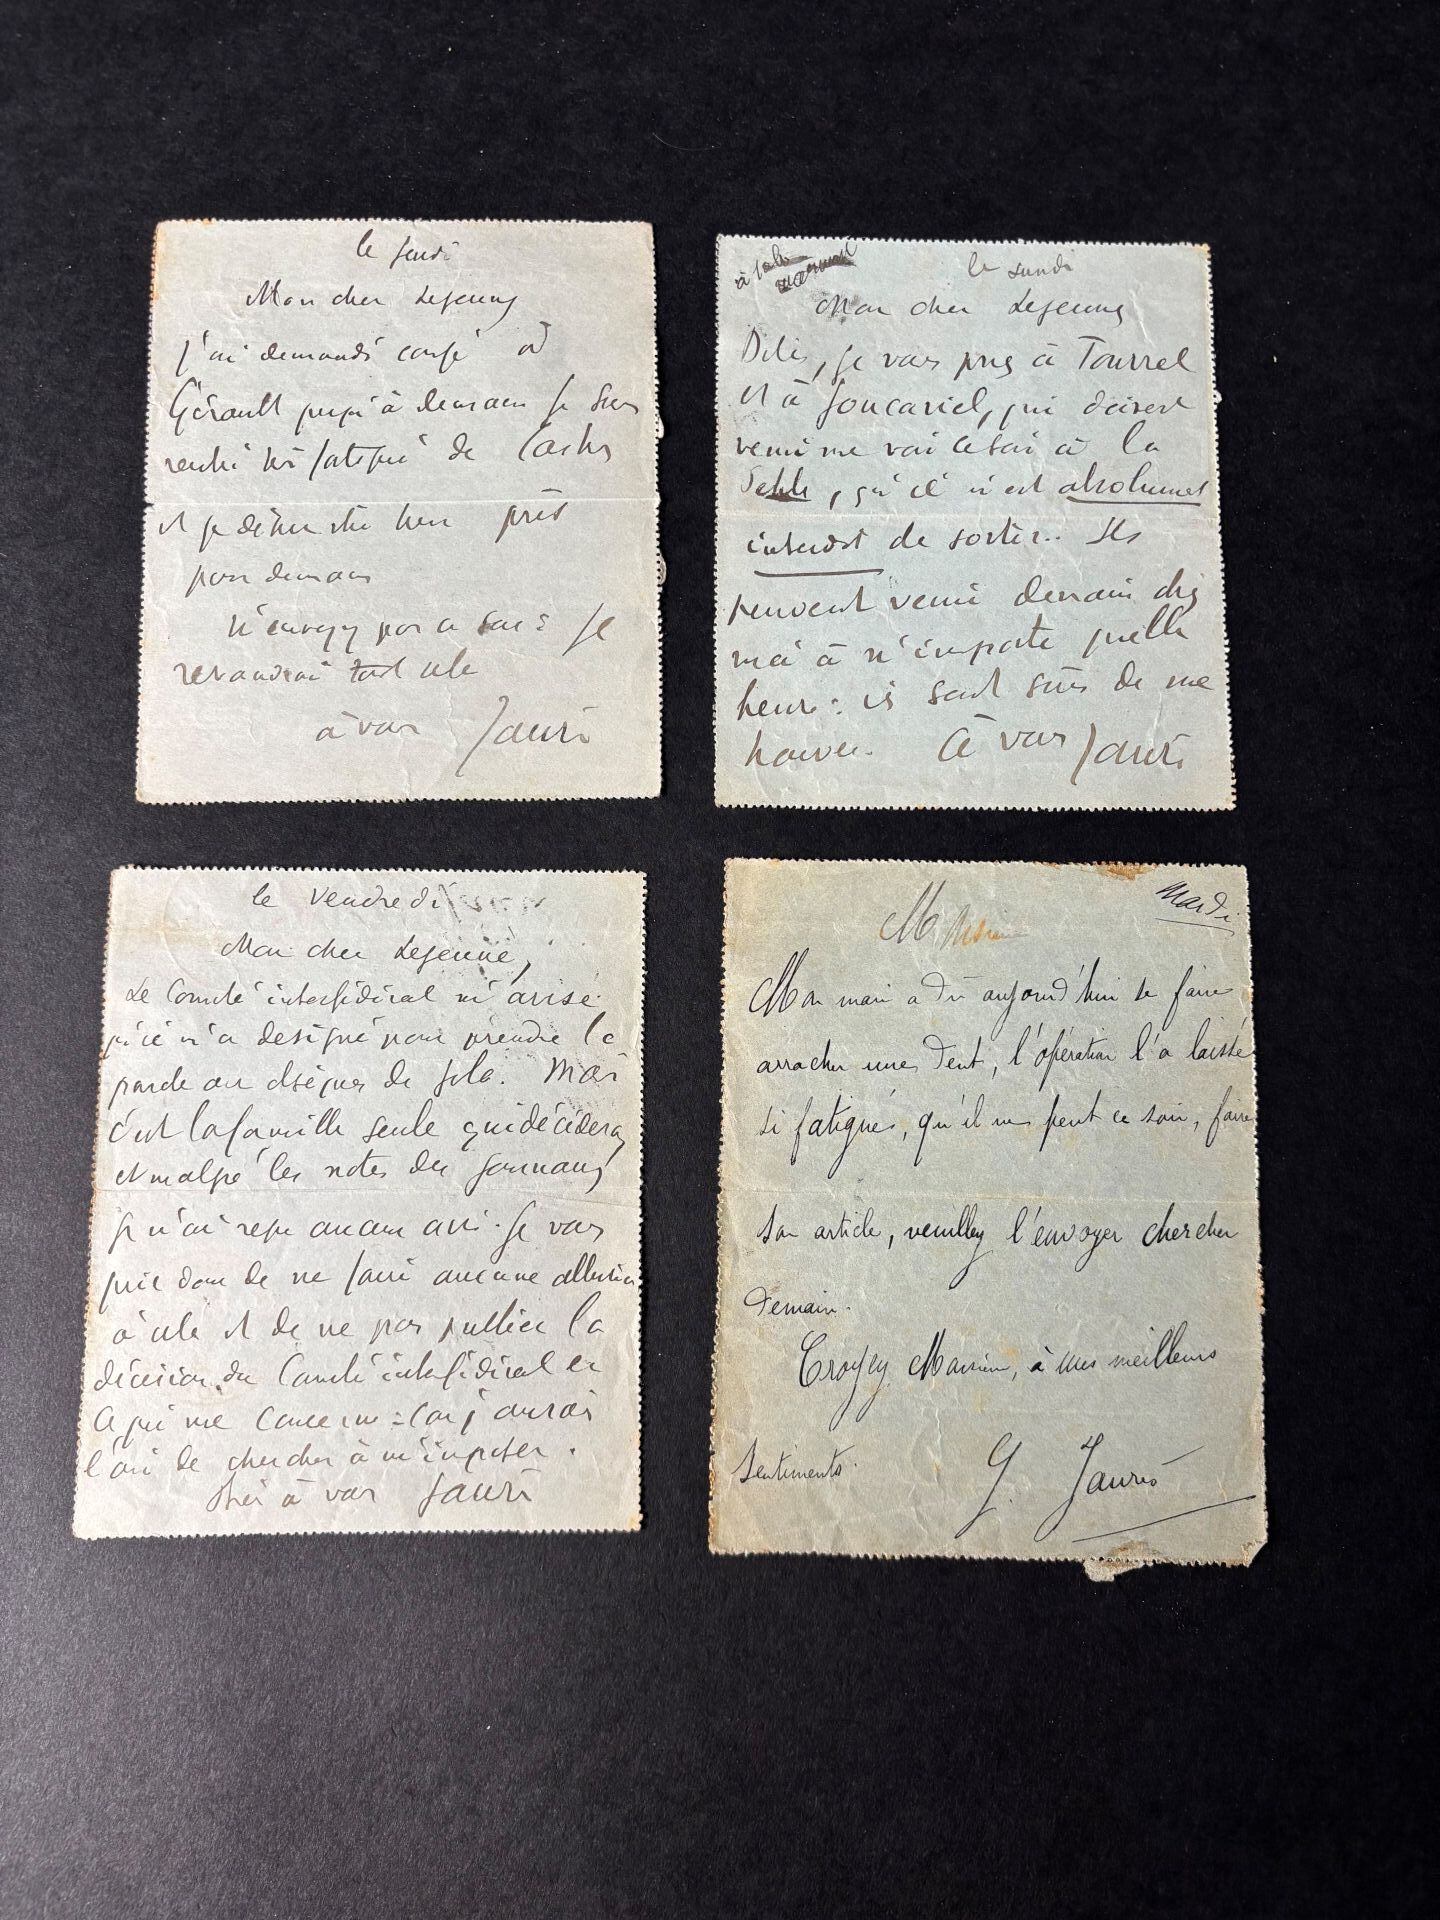 le Jeudi
Mon cher Lejeune
j'ai demandé congé à
Gérault jusqu'à demain je suis
rentré très fatigué de Castres
et je désire être bien prêt
pour demain
n'envoyez pas ce soir : je
revaudrai tout cela
à vous Jaurès
le Lundi
Mon cher Lejeune
Dites, je vous prie à Tourrel
et à Joucaviel, qui doivent
venir me voir ce soir à la
qu'il m'est absolument
interdit de sortir.. Ils
peuvent venir demain chez
moi à n'importe quelle
heure : ils sont sûrs de me
trouver. à vous Jaurès
le Vendredi
Mon cher Lejeune,
Le Comité interfédéral m'avise
qu'il m'a désigné pour prendre la
parole aux obsèques de Zola. Mais
c'est la famille seule qui décidera,
et malgré les notes des journaux
je n'ai reçu aucun avis. Je vous
prie donc de ne faire aucune allusion
à cela et de ne pas publier la
décision du Comité interfédéral en
ce qui me concerne : car j'aurais
l'air de chercher à m'imposer.
à vous Jaurès
Mardi
Monsieur
Mon mari a dû aujourd'hui se faire
arracher une dent, l'opération l'a laissé
si fatigué, qu'il ne peut ce soir, faire
son article, veuillez l'envoyer chercher
demain.
Croyez Monsieur, à mes meilleurs
sentiments.
Jaurès